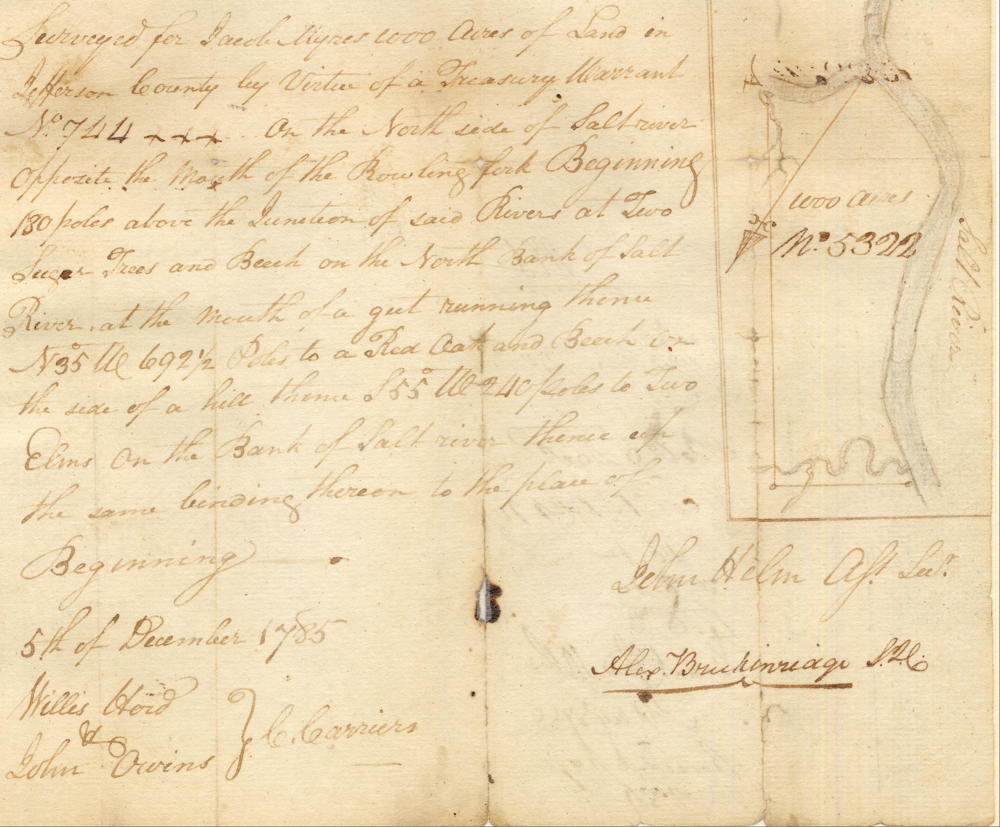 Surveyed for Jacob Myres 1000 Acres of Land in
Jefferson County by Virtue of a Treasury Warrant
No. 744 On the North side of Salt river
opposite the Mouth of the Rowling fork Beginning
180 poles above the Junction of said Rivers at Two
Suger Trees and Beech on the North Bank of Salt
River, at the mouth of a gut running thence
N35°W 692½ Poles to a Red Oak and Beech on
the side of a hill thence S55°W 240 poles to Two
Elms On the Bank of Salt river thence up
the same binding thereon to the place of
Beginning
5th of December 1785
Willis Hord
&
John Owins
C. Carriers
1000 acres
No. 5322
Salt River
John Helm Asst. Sur.
Alex. Breckinridge